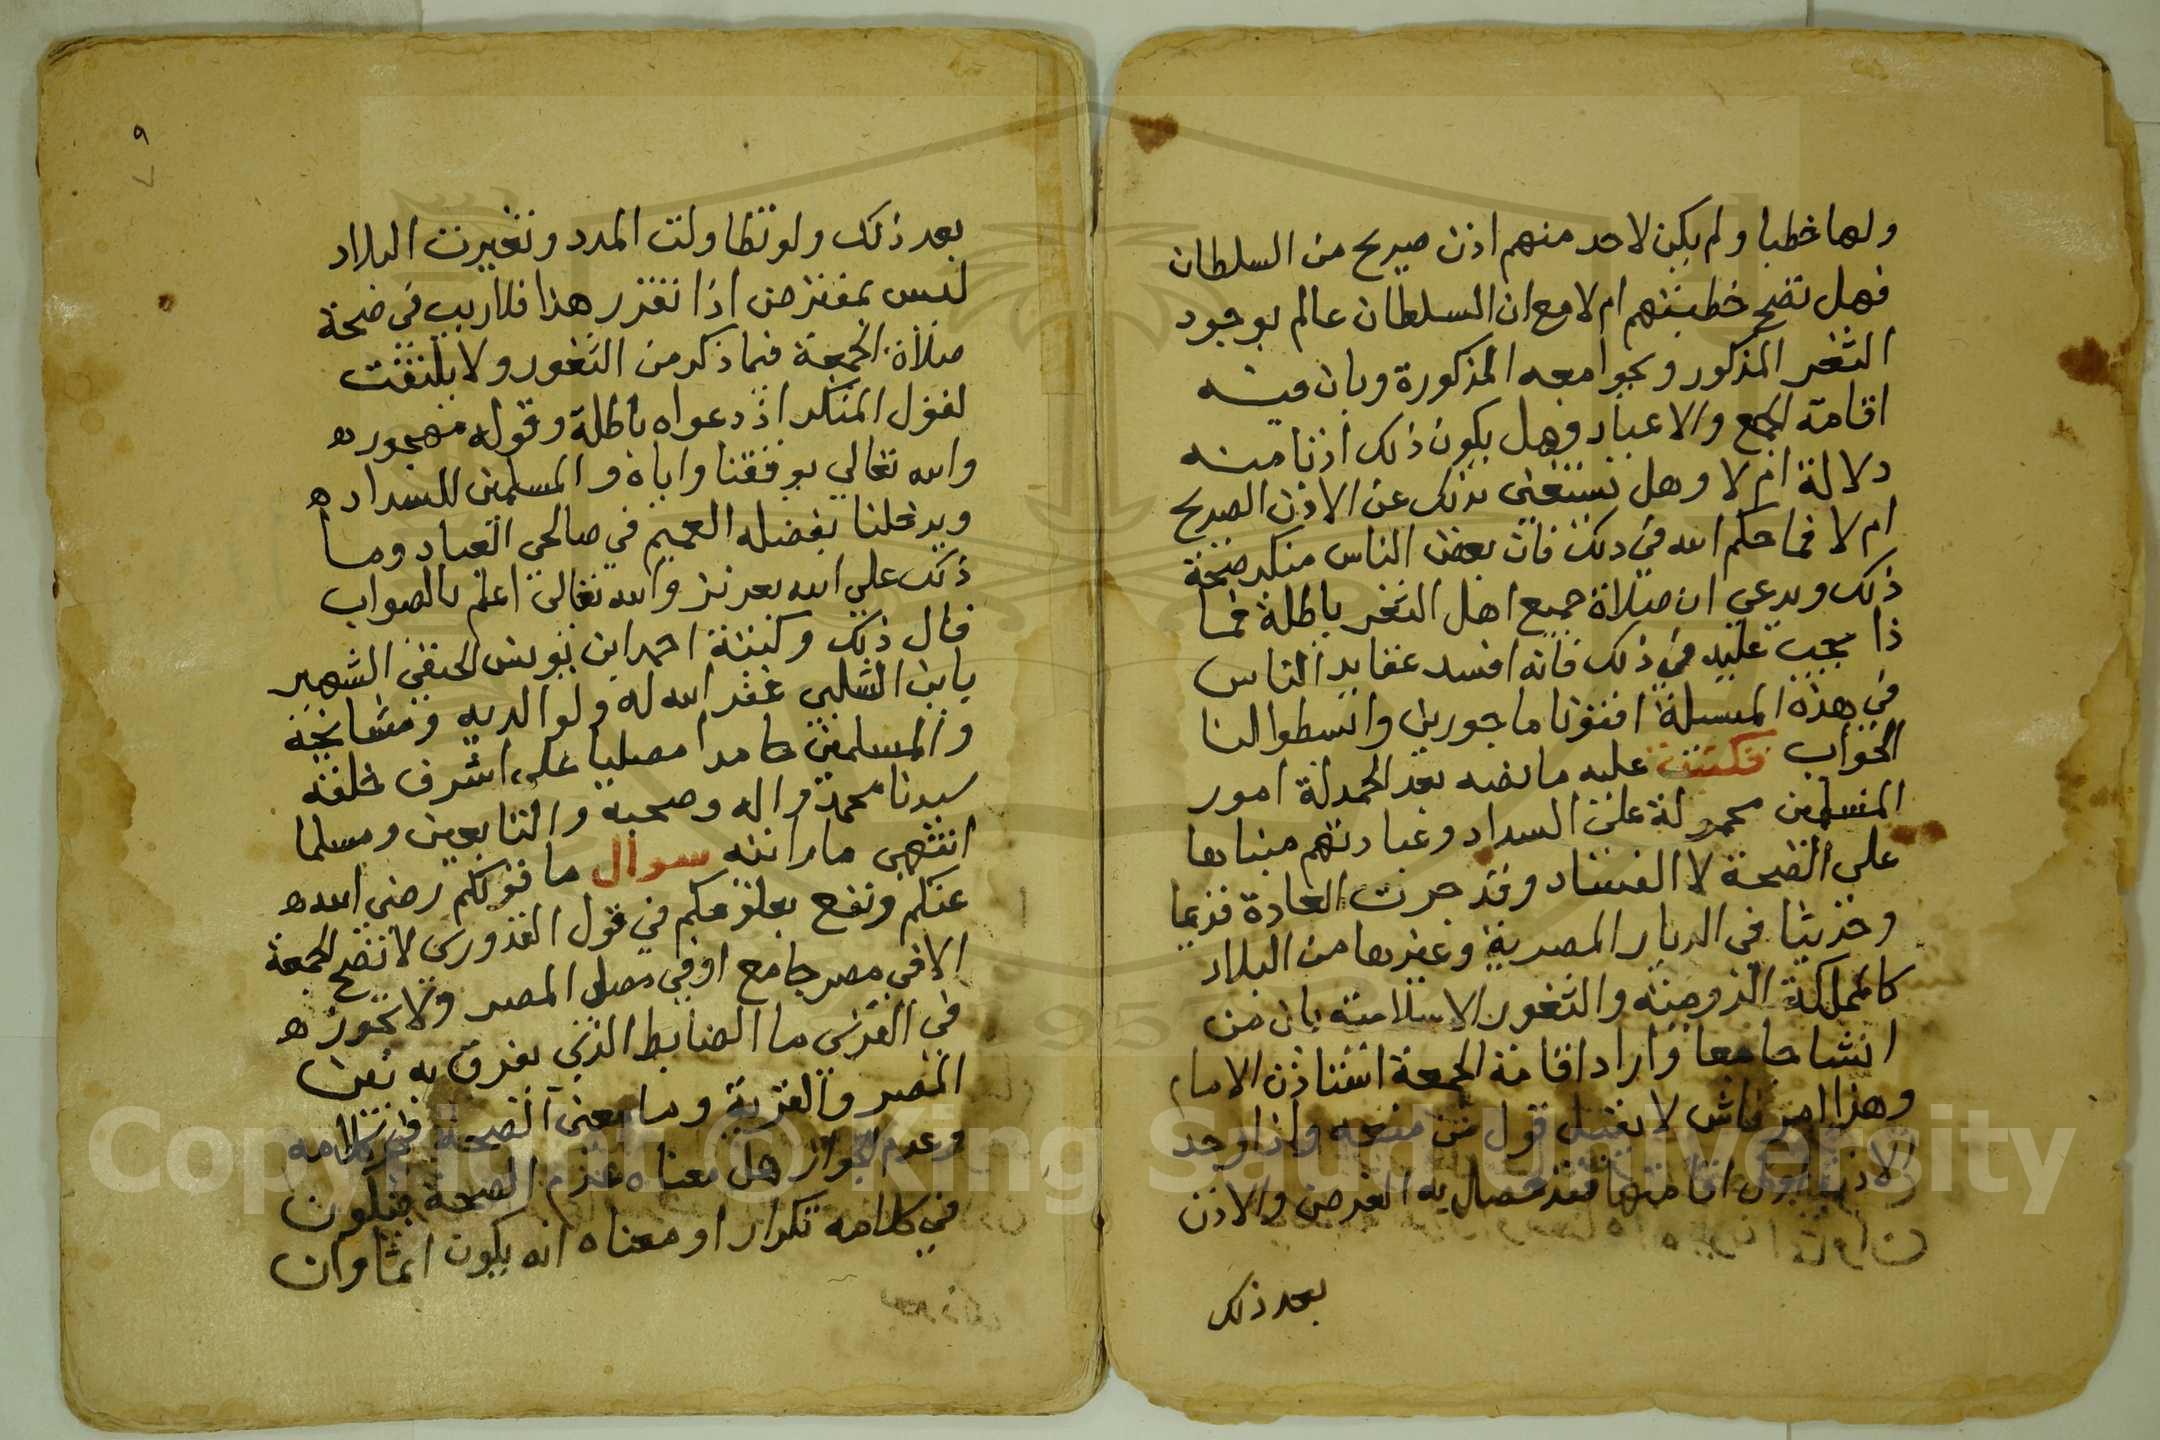 ولها خطبا ولم يكن لاحد منهم اذن صريح من السلطان
فهل تصح خطبتهم ام لا مع ان السلطان عالم بوجود
الثغر المذكور وبجوامعه المذكورة وبان فيه
اقامة الجمع والاعياد وهل يكون ذلك اذنا منه
دلالة ام لا وهل يستغنى بذلك عن الاذن الصريح
ام لا فما حكم الله في ذلك فان بعض الناس منكر صحة
ذلك ويدعي ان صلاة جميع اهل الثغر باطلة فما
ذا يجب عليه في ذلك فانه افسد عقايد الناس
في هذه المسيلة افتونا ماجورين وابسطوا لنا
الجواب فكتبت عليه ما نصه بعد الحمدلة امور
المسلمين محمولة على السداد وعبادتهم مبناها
على الصحة لا الفساد وقد جرت العادة قديما
وحديثا في الديار المصرية وغيرها من البلاد
كالمملكة الرومية والثغور الاسلامية بان من
انشا جامعا واراد اقامة الجمعة استاذن الامام
وهذا امر فاش لا يقبل قول من منعه واذا وجد
الاذن باقامتها فقد حصل به الغرض والاذن
بعد ذلك
٩
بعد ذلك ولو تطاولت المدد وتغيرت البلاد
ليس بمفترض اذا تقرر هذا فلا ريب في صحة
صلاة الجمعة فيما ذكر من الثغور ولا يلتفت
لقول المنكر اذ دعواه باطلة وقوله مهجور ه
والله تعالى يوفقنا واياه والمسلمين للسداد ه
ويدخلنا بفضله العميم في صالحي العباد وما
ذلك على الله بعزيز والله تعالى اعلم بالصواب
قال ذلك وكتبه احمد ابن يونس الحنفي الشهير
بابن الشلبي غفر الله له ولوالديه ومشايخه
والمسلمين حامدا مصليا على اشرف خلقه
سيدنا محمد واله وصحبه والتابعين ومسلما
انتهى ما رايته سوال ما قولكم رضي الله ه
عنكم ونفع بعلومكم في قول القدوري لا تصح الجمعة
الا في مصر جامع او في مصلى المصر ولا تجوز ه
في القرى ما الضابط الذي يفرق به بين
المصر والقرية وما معنى الصحة في كلامه
وعدم الجواز هل معناه عدم الصحة فيكون
في كلامه تكرار او معناه انه يكون اثما وان